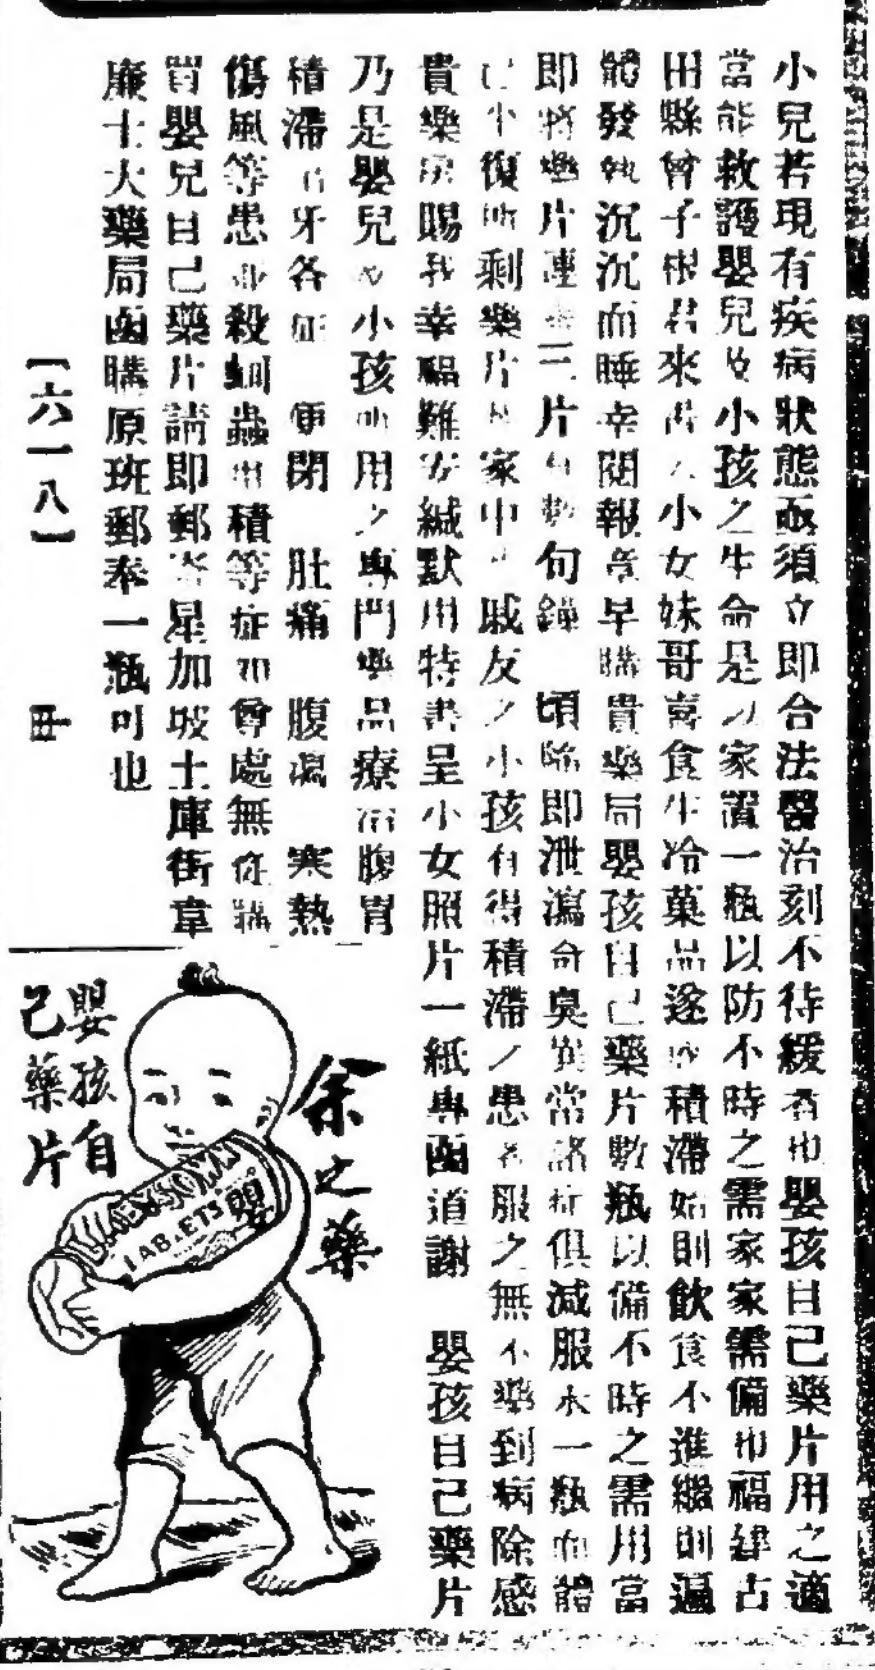 小兒若現有疾病狀態亟須立即合法醫治刻不待緩者也嬰孩自己藥片用之適
當能救護嬰兒及小孩之生命是以家置一瓶以防不時之需家家需備也福建古
田縣曾子根君來書云小女妹哥喜食生冷菓品遂成積滯始則飲食不進繼則遍
體發熱沉沉而睡幸閱報章早購貴藥局嬰孩自己藥片數瓶以備不時之需用當
即將藥片連 三片 數句鐘 頃除即泄瀉奇臭異常諸症俱減服未一瓶而體
已平復所剩藥片 家中 戚友之小孩有得積滯之患者服之無不藥到病除感
貴藥房賜我幸福難安緘默用特書呈小女照片一紙專函道謝 嬰孩自己藥片
乃是嬰兒及小孩所用之專門藥品療治腹胃
積滯 牙各症 便閉 肚痛 腹瀉 寒熱
傷風等患 殺蛔蟲 積等症如尊處無從購
買嬰兒自己藥片請即郵 星加坡士庫街韋
廉士大藥局函購原班郵奉一瓶可也
【六一八】 冊
余之藥
嬰孩自
己藥片
TABLETS
嬰